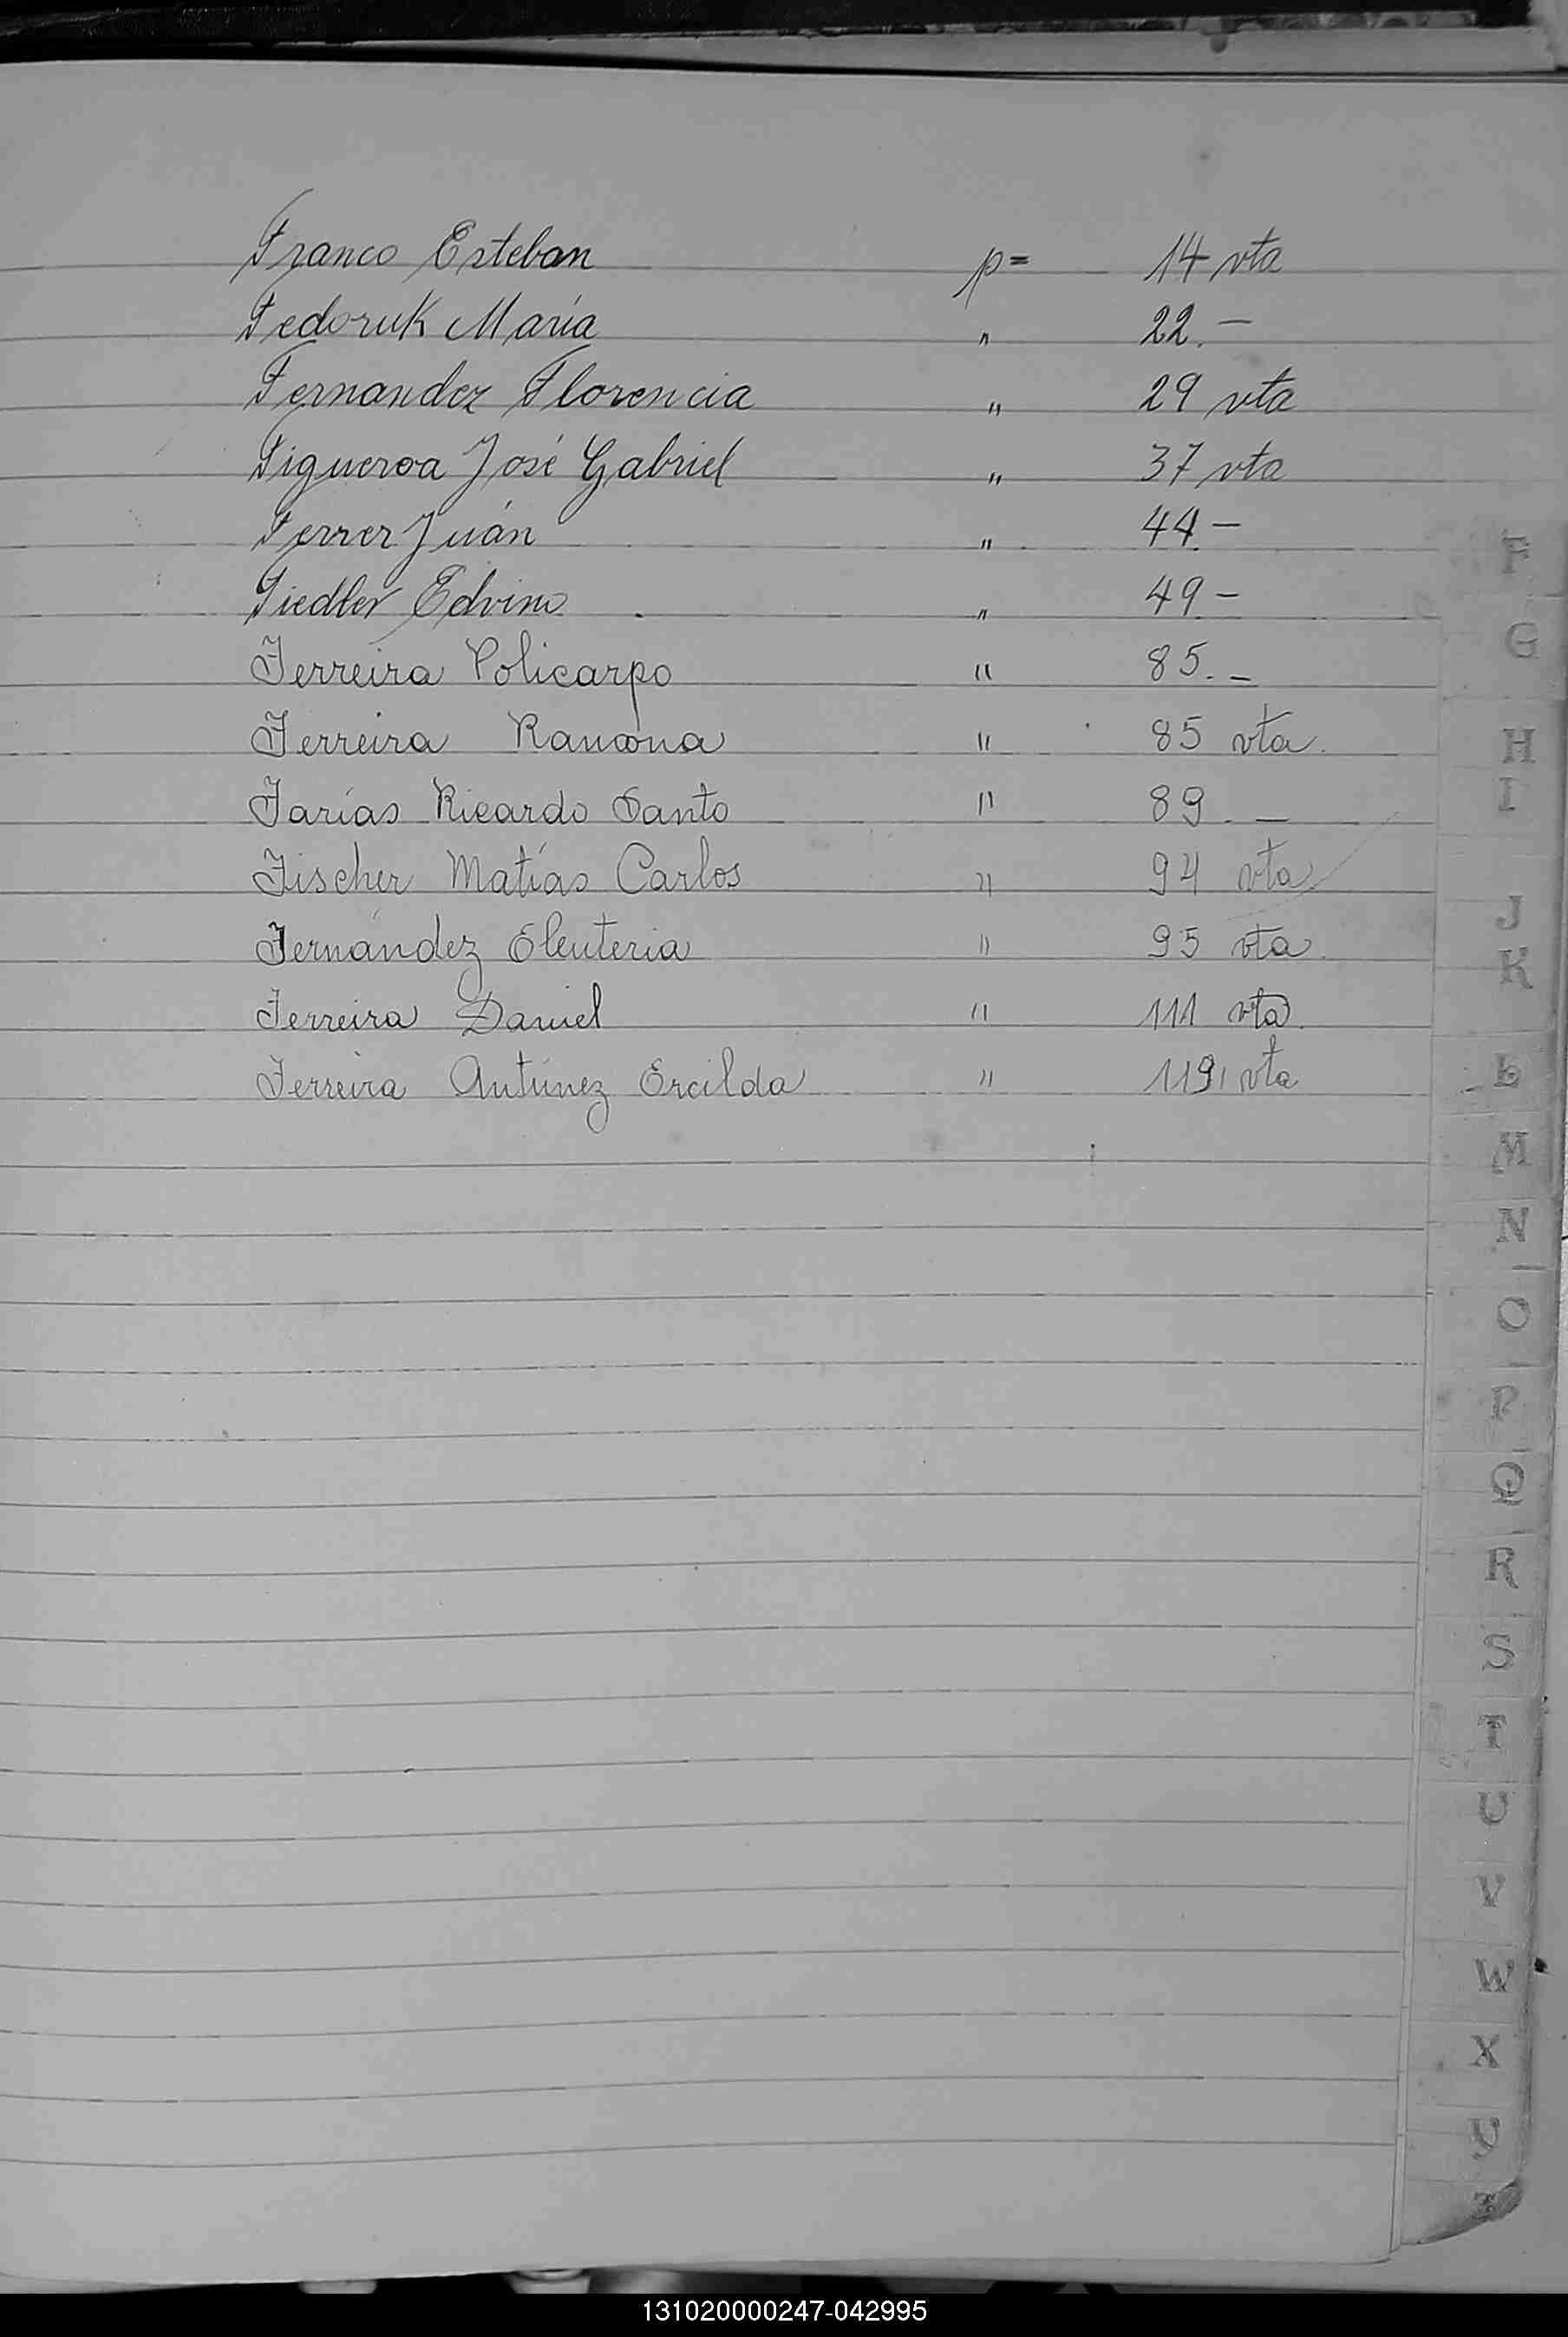 Franco Esteban p= 14 vta
Fedoruk María " 22.-
Fernandez Florencia " 29 vta
Figueroa José Gabriel " 37 vta
Ferrer Juán " 44.-
Fiedler Edvino " 49-
Ferreira Policarpo " 85.-
Ferreira Ramona " 85 vta.
Farías Ricardo Santo " 89.-
Fischer Matías Carlos " 94 vta
Fernández Eleuteria " 95 vta.
Ferreira Daniel " 111 vta.
Ferreira Antúnez Ercilda " 119, vta
F
G
H
I
J
K
L
M
N
O
P
Q
R
S
T
U
V
W
X
Y
Z
131020000247-042995